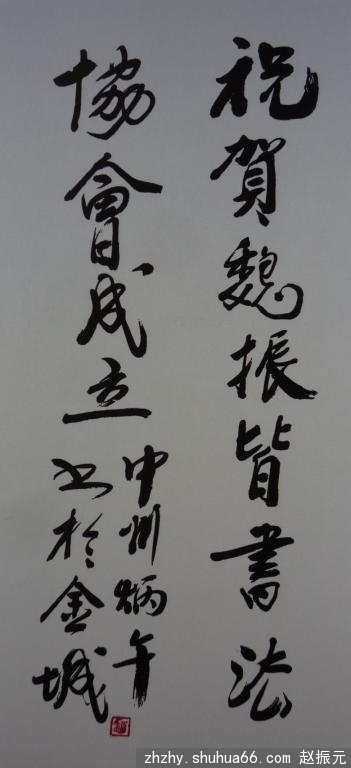 祝賀魏振皆書法
協會成立
中州炳午
书於金城
zhzhy.shuhua66.com 赵振元